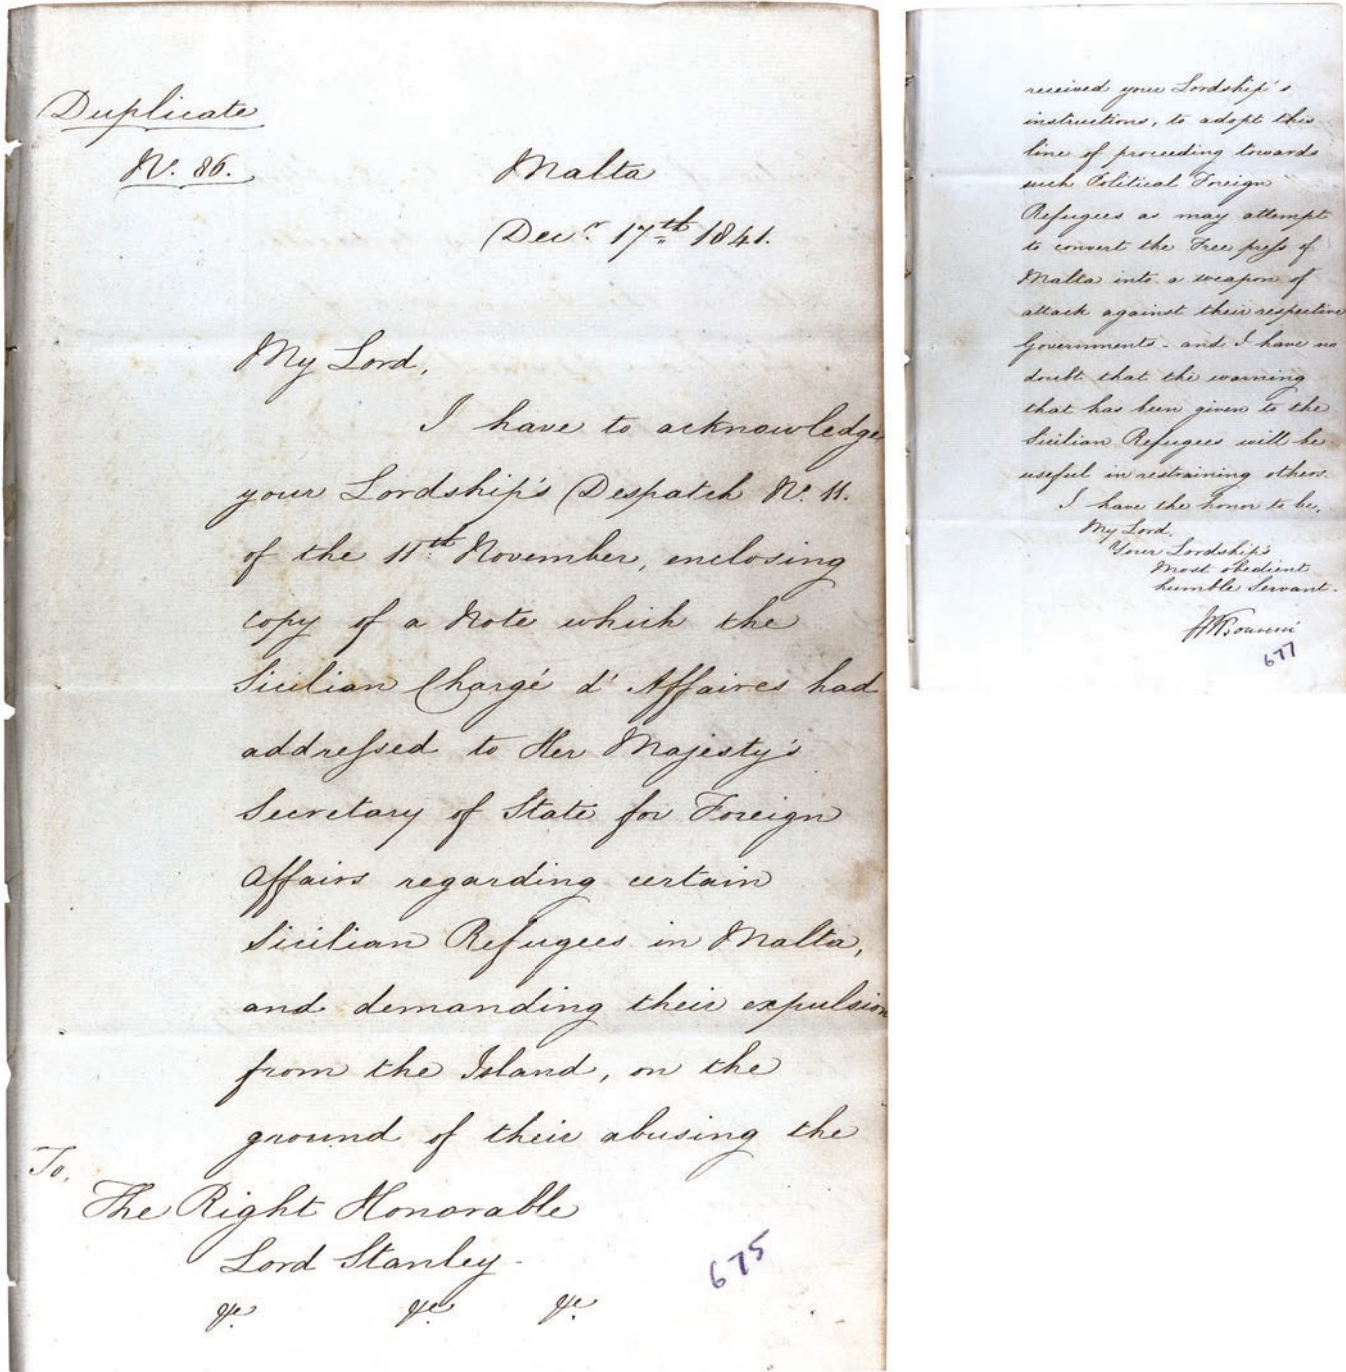 Duplicate
No. 86.
Malta
Decr. 17th 1841.
My Lord,
I have to acknowledge
your Lordship's Despatch No. 11.
of the 11th November, enclosing
copy of a Note which the
Sicilian Chargé d'Affaires had
addressed to Her Majesty's
Secretary of State for Foreign
Affairs regarding certain
Sicilian Refugees in Malta,
and demanding their expulsion
from the Island, on the
ground of their abusing the
To,
The Right Honorable
Lord Stanley-
&c &c &c
675
received your Lordship's
instructions, to adopt this
line of proceeding towards
such Political Foreign
Refugees as may attempt
to convert the Free press of
Malta into a weapon of
attack against their respective
Governments - and I have no
doubt that the warning
that has been given to the
Sicilian Refugees will be
useful in restraining others.
I have the honor to be,
My Lord,
Your Lordship's
Most obedient
humble Servant.
677